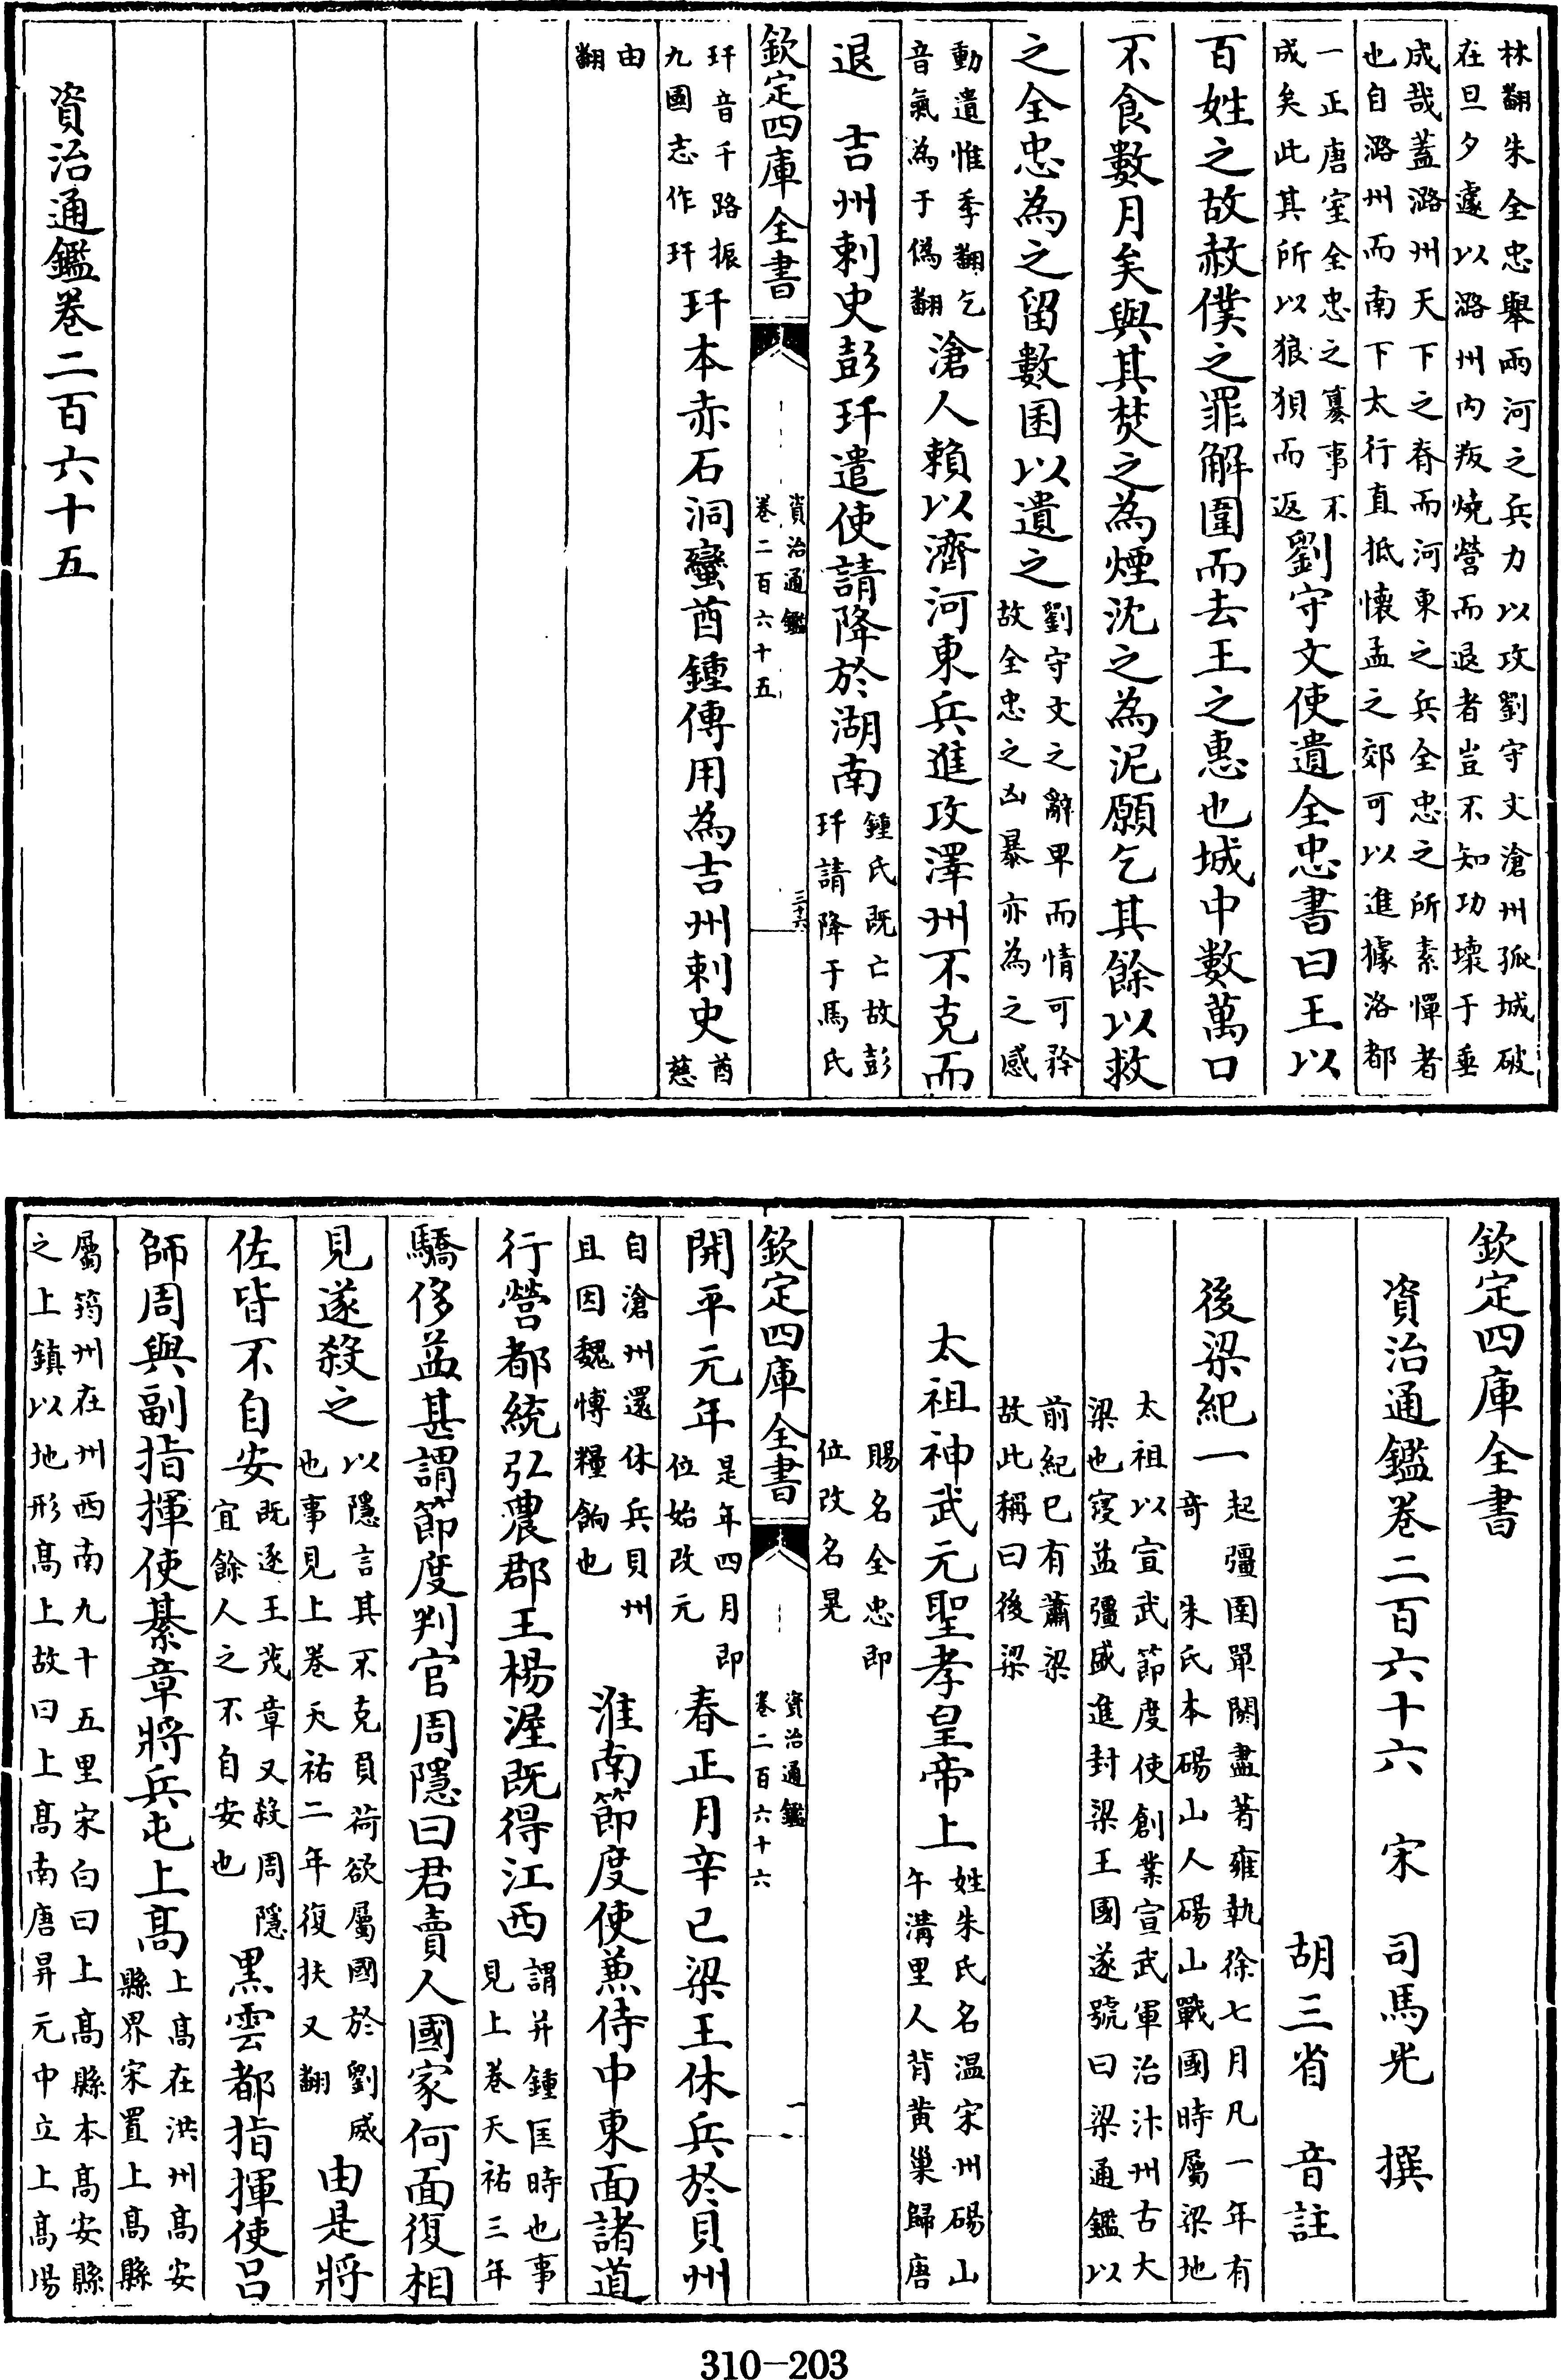 林翻朱全忠舉兩河之兵力以攻劉守文滄州孤城破
在旦夕遽以潞州内叛燒營而退者豈不知功壞于垂
成哉蓋潞州天下之脊而河東之兵全忠之所素憚者
也自潞州而南下太行直抵懷孟之郊可以進據洛都
一正唐室全忠之簒事不
成矣此其所以狼狽而返
劉守文使遺全忠書曰王以
百姓之故赦僕之罪解圍而去王之惠也城中數萬口
不食數月矣與其焚之為煙沈之為泥願乞其餘以救
之全忠為之留數囷以遺之
劉守文之辭卑而情可矜
故全忠之凶暴亦為之感
動遺惟季翻乞
音氣為于偽翻
滄人賴以濟河東兵進攻澤州不克而
退　吉州刺史彭玕遣使請降於湖南
鍾氏既亡故彭
玕請降于馬氏
欽定四庫全書
資治通鑑
卷二百六十五
三十六
玕音千路振
九國志作玕
玕本赤石洞蠻酋鍾傳用為吉州刺史
酋
慈
由
翻
資治通鑑卷二百六十五
欽定四庫全書
資治通鑑卷二百六十六　宋　司馬光　撰
胡三省　音註
後梁紀一
起彊圉單閼盡著雍執徐七月凡一年有
奇　朱氏本碭山人碭山戰國時屬梁地
太祖以宣武節度使創業宣武軍治汴州古大
梁也寖益彊盛進封梁王國遂號曰梁通鑑以
前紀已有蕭梁
故此稱曰後梁
太祖神武元聖孝皇帝上
姓朱氏名温宋州碭山
午溝里人背黄巢歸唐
賜名全忠即
位改名晃
欽定四庫全書
資治通鑑
卷二百六十六
一
開平元年
是年四月即
位始改元
春正月辛巳梁王休兵於貝州
自滄州還休兵貝州
且因魏博糧餉也
淮南節度使兼侍中東面諸道
行營都統弘農郡王楊渥既得江西
謂并鍾匡時也事
見上卷天祐三年
驕侈益甚謂節度判官周隱曰君賣人國家何面復相
見遂殺之
以隱言其不克負荷欲屬國於劉威
也事見上卷天祐二年復扶又翻
由是將
佐皆不自安
既逐王茂章又殺周隱
宜餘人之不自安也
黒雲都指揮使吕
師周與副指揮使綦章將兵屯上髙
上髙在洪州髙安
縣界宋置上髙縣
屬筠州在州西南九十五里宋白曰上髙縣本髙安縣
之上鎮以地形髙上故曰上髙南唐昇元中立上髙塲
310-203